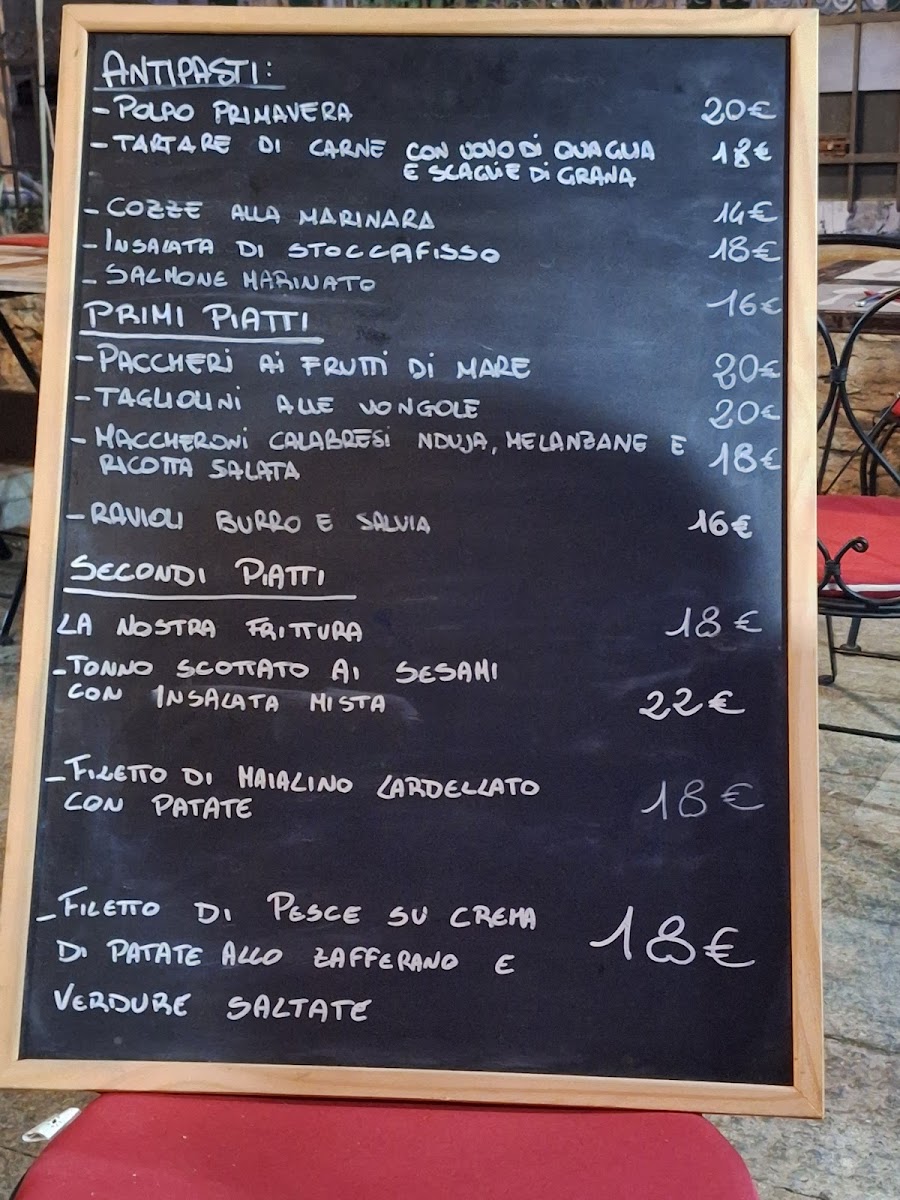 ANTIPASTI:
- POLPO PRIMAVERA 20€
- TARTARE DI CARNE CON UOVO DI QUAGLIA 18€
E SCAGLIE DI GRANA
- COZZE ALLA MARINARA 14€
- INSALATA DI STOCCAFISSO 18€
- SALMONE MARINATO 16€
PRIMI PIATTI
- PACCHERI AI FRUTTI DI MARE 20€
- TAGLIOLINI ALLE VONGOLE 20€
- MACCHERONI CALABRESI NDUJA, MELANZANE E 18€
RICOTTA SALATA
- RAVIOLI BURRO E SALVIA 16€
SECONDI PIATTI
LA NOSTRA FRITTURA 18€
- TONNO SCOTTATO AI SESAMI
CON INSALATA MISTA 22€
- FILETTO DI MAIALINO LARDELLATO
CON PATATE 18€
- FILETTO DI PESCE SU CREMA
DI PATATE ALLO ZAFFERANO E 18€
VERDURE SALTATE